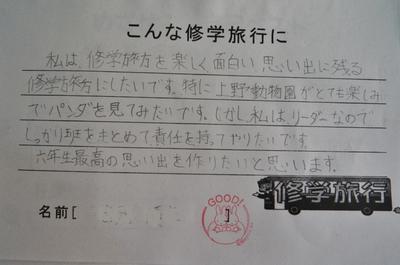 こんな修学旅行に
私は、修学旅方を楽しく面白い思い出に残る
修学旅方にしたいです。特に上野動物園がとても楽しみ
でパンダを見てみたいです。しかし、私はリーダーなので
しっかり班をまとめて責任を持ってやりたいです。
六年生最高の思い出を作りたいと思います。
GOOD!
修学旅行
名前[ ]